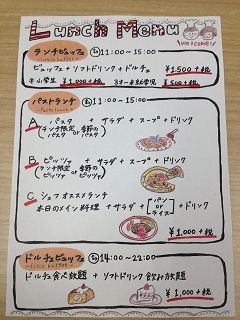 Lunch Menu
Welcome!
ランチビュッフェ 11:00~15:00
~lunch buffet~
ビュッフェ + ソフトドリンク + ドルチェ ¥1500+税
小学生 ¥1,000+税 3才~未就学児 500+税
パスタランチ 11:00~15:00
~Pasta lunch~
A パスタ + サラダ + スープ + ドリンク
(ランチ限定パスタ or 季節のパスタ)
B ピッツァ + サラダ + スープ + ドリンク
(ランチ限定ピッツァ or 季節のピッツァ)
C シェフオススメランチ
本日のメイン料理 + サラダ + [パン or ライス] + ドリンク
¥1,000+税
ドルチェビュッフェ 14:00~22:00
~dolce buffet~
ドルチェ食べ放題 + ソフトドリンク飲み放題
¥1,000+税